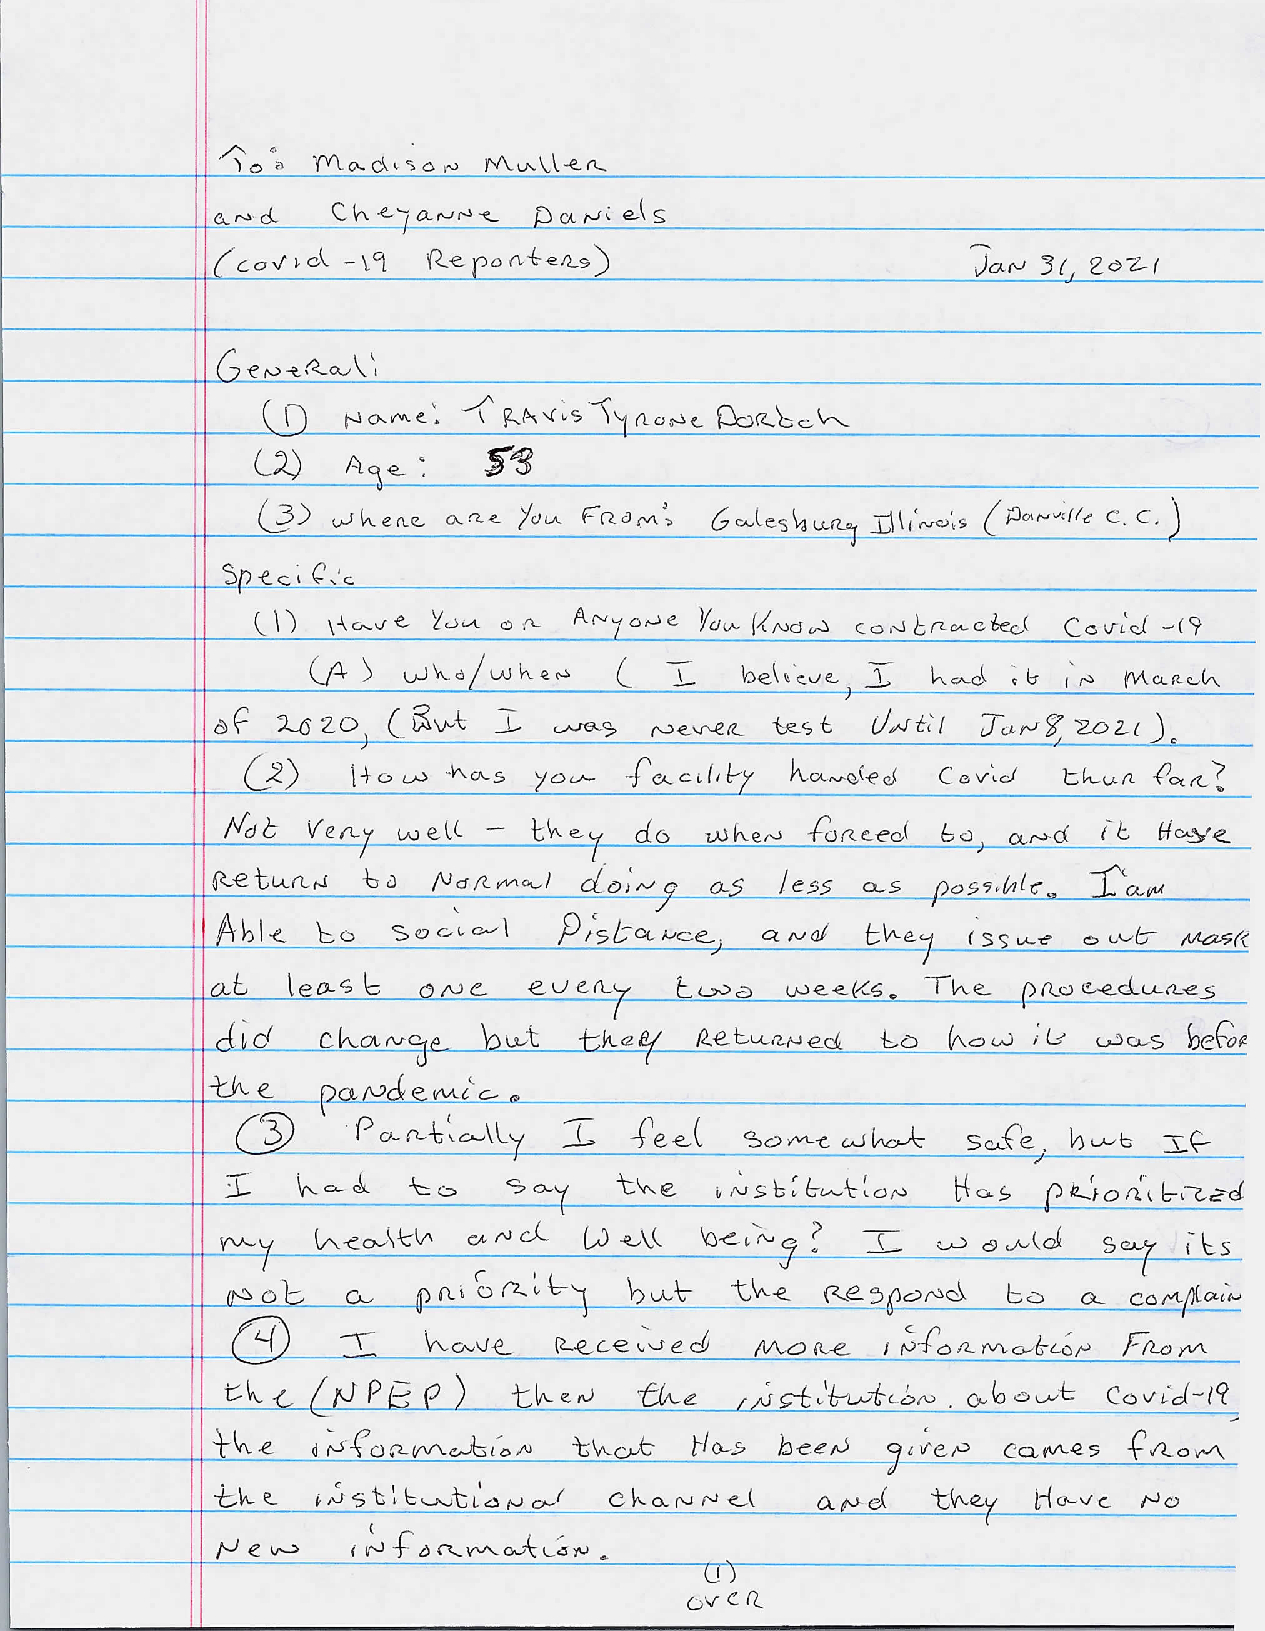 To: Madison Muller
and Cheyanne Daniels
(covid-19 Reporters) Jan 31, 2021
General:
(1) Name: Travis Tyrone Dorbch
(2) Age: 53
(3) where are You From: Galesburg Illinois (Danville C.C.)
Specific
(1) Have You or Anyone You Know contracted Covid-19
(A) who/when ( I believe, I had it in March
of 2020, (But I was never test Until Jan 8, 2021).
(2) How has you facility handed Covid thur far?
Not Very well - they do when forced to, and it Have
Return to Normal doing as less as possible. I'am
Able to social Distance, and they issue out mask
at least one every two weeks. The procedures
did change but they Returned to how it was befor
the pandemic.
(3) Partially I feel somewhat safe, but If
I had to say the institution Has prioritized
my health and Well being? I would say its
Not a priority but the respond to a complain
(4) I have received more information From
the (NPEP) then the institution. about Covid-19,
the information that Has been given cames from
the institutional channel and they Have No
New information.
(1)
over